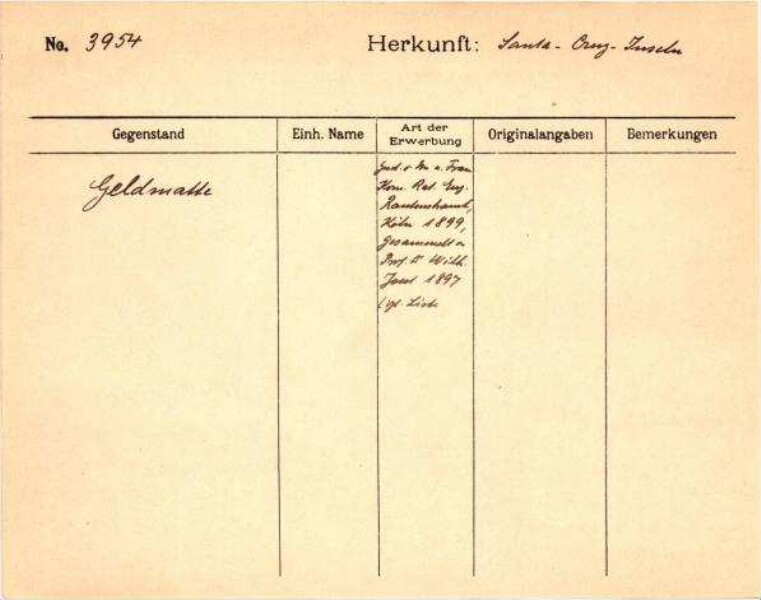 No. 3954
Herkunft: Santa-Cruz-Inseln
Gegenstand
Einh. Name
Art der Erwerbung
Originalangaben
Bemerkungen
Geldmatte
Gesch. v. Frau
Kom. Rat. Eug.
Rautenstrauch,
Köln 1899,
gesammelt v.
Prof. Dr Wilh.
Joest 1897
(vgl. Liste